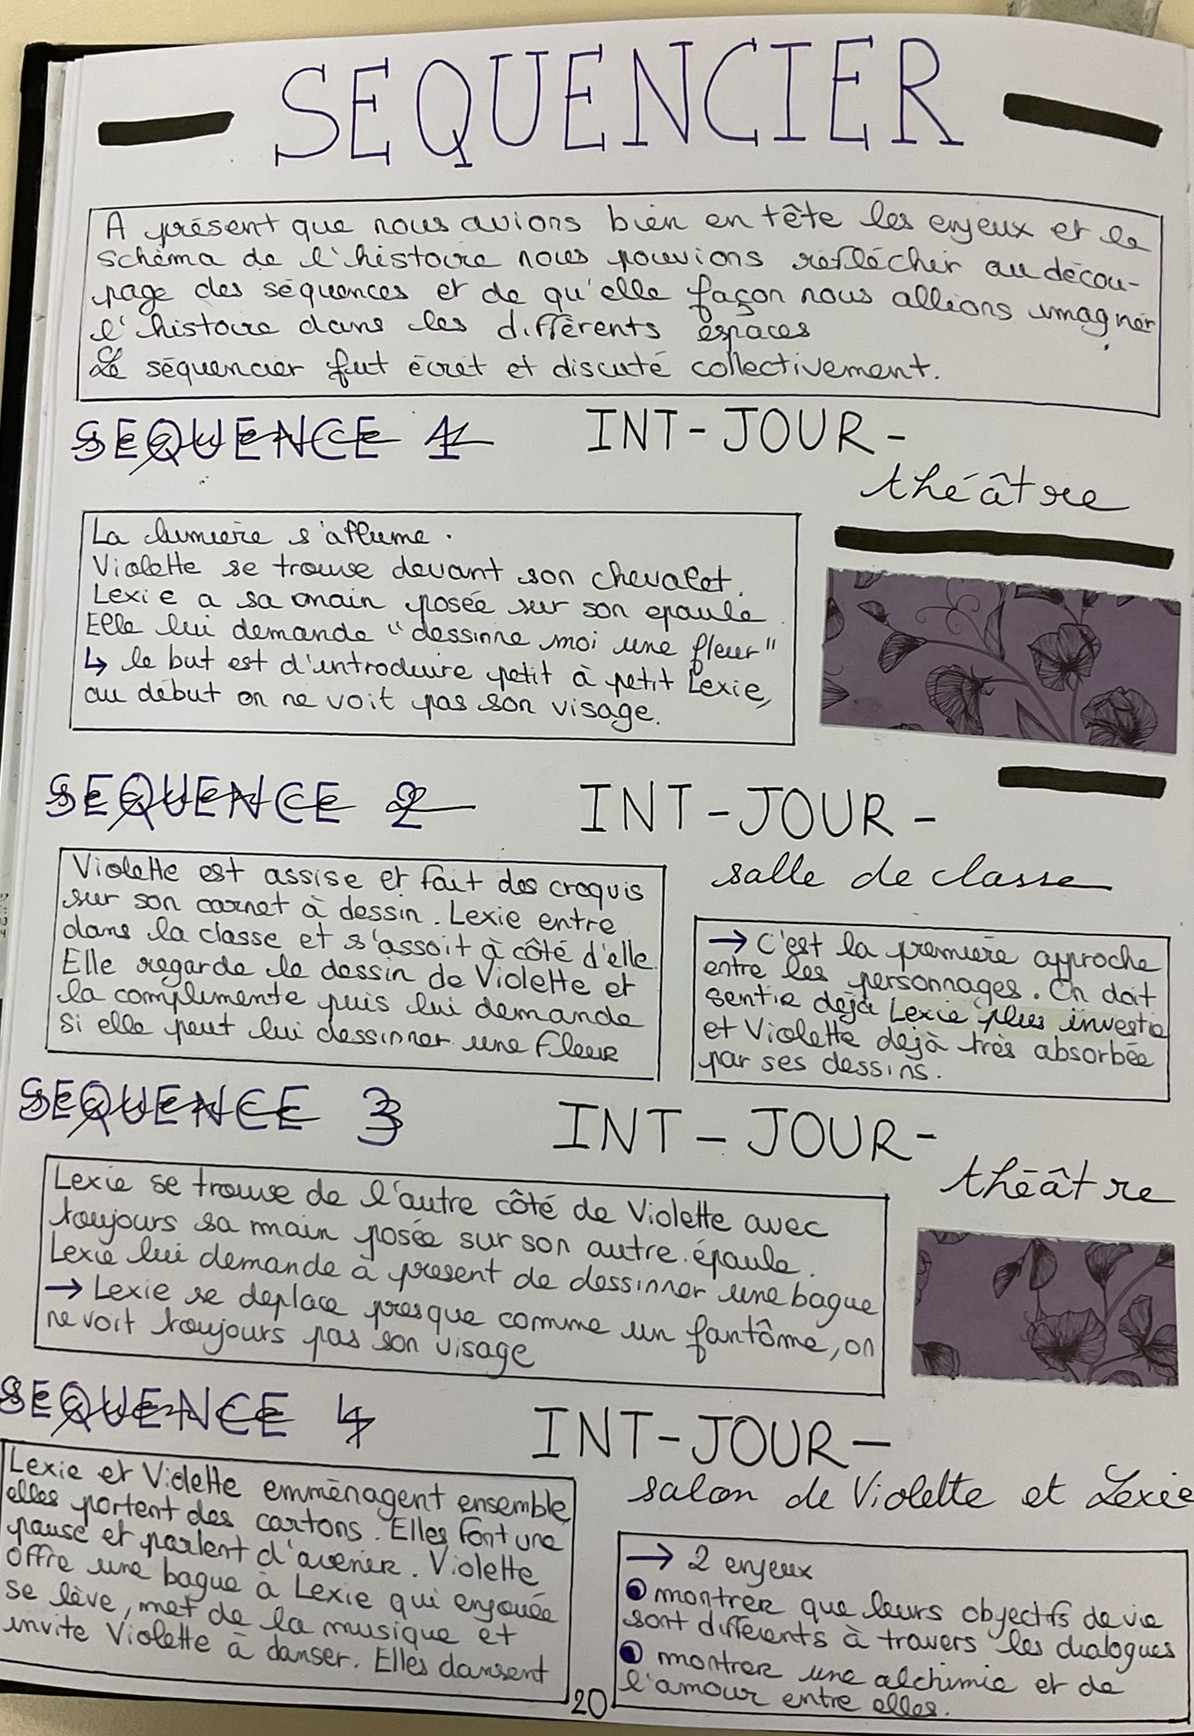 SEQUENCIER
A présent que nous avions bien en tête les enjeux et le
schéma de l'histoire nous pouvions réflécher au décou-
page des séquences et de qu'elle façon nous allions imagner
l'histoire dans les différents espaces
Le séquencier fut écrit et discuté collectivement.
SEQUENCE 1 INT-JOUR-
théâtre
La lumière s'allume.
Violette se trouve devant son chevalet.
Lexie a sa main posée sur son epaule.
Elle lui demande "dessinne moi une fleur"
↳ le but est d'introduire petit à petit Lexie,
au début on ne voit pas son visage.
SEQUENCE 2 INT-JOUR-
salle de classe
Violette est assise et fait des croquis
sur son carnet à dessin. Lexie entre
dans la classe et s'assoit à côté d'elle.
Elle regarde le dessin de Violette et
la complimente puis lui demande
si elle peut lui dessinner une fleur
→ C'est la première approche
entre les personnages. On doit
sentir dejà Lexie plus investie
et Violette dejà très absorbée
par ses dessins.
SEQUENCE 3 INT-JOUR-
théâtre
Lexie se trouve de l'autre côté de Violette avec
toujours sa main posée sur son autre épaule.
Lexie lui demande à present de dessinner une bague
→ Lexie se deplace presque comme un fantôme, on
ne voit toujours pas son visage
SEQUENCE 4 INT-JOUR-
salon de Violette et Lexie
Lexie et Violette emménagent ensemble,
elles portent des cartons. Elles font une
pause et parlent d'avenir. Violette
offre une bague à Lexie qui enjouée
se lève, met de la musique et
invite Violette à danser. Elles dansent
→ 2 enjeux
montrer que leurs objectifs de vie
sont différents à travers les dialogues
montrer une alchimie et de
l'amour entre elles.
20